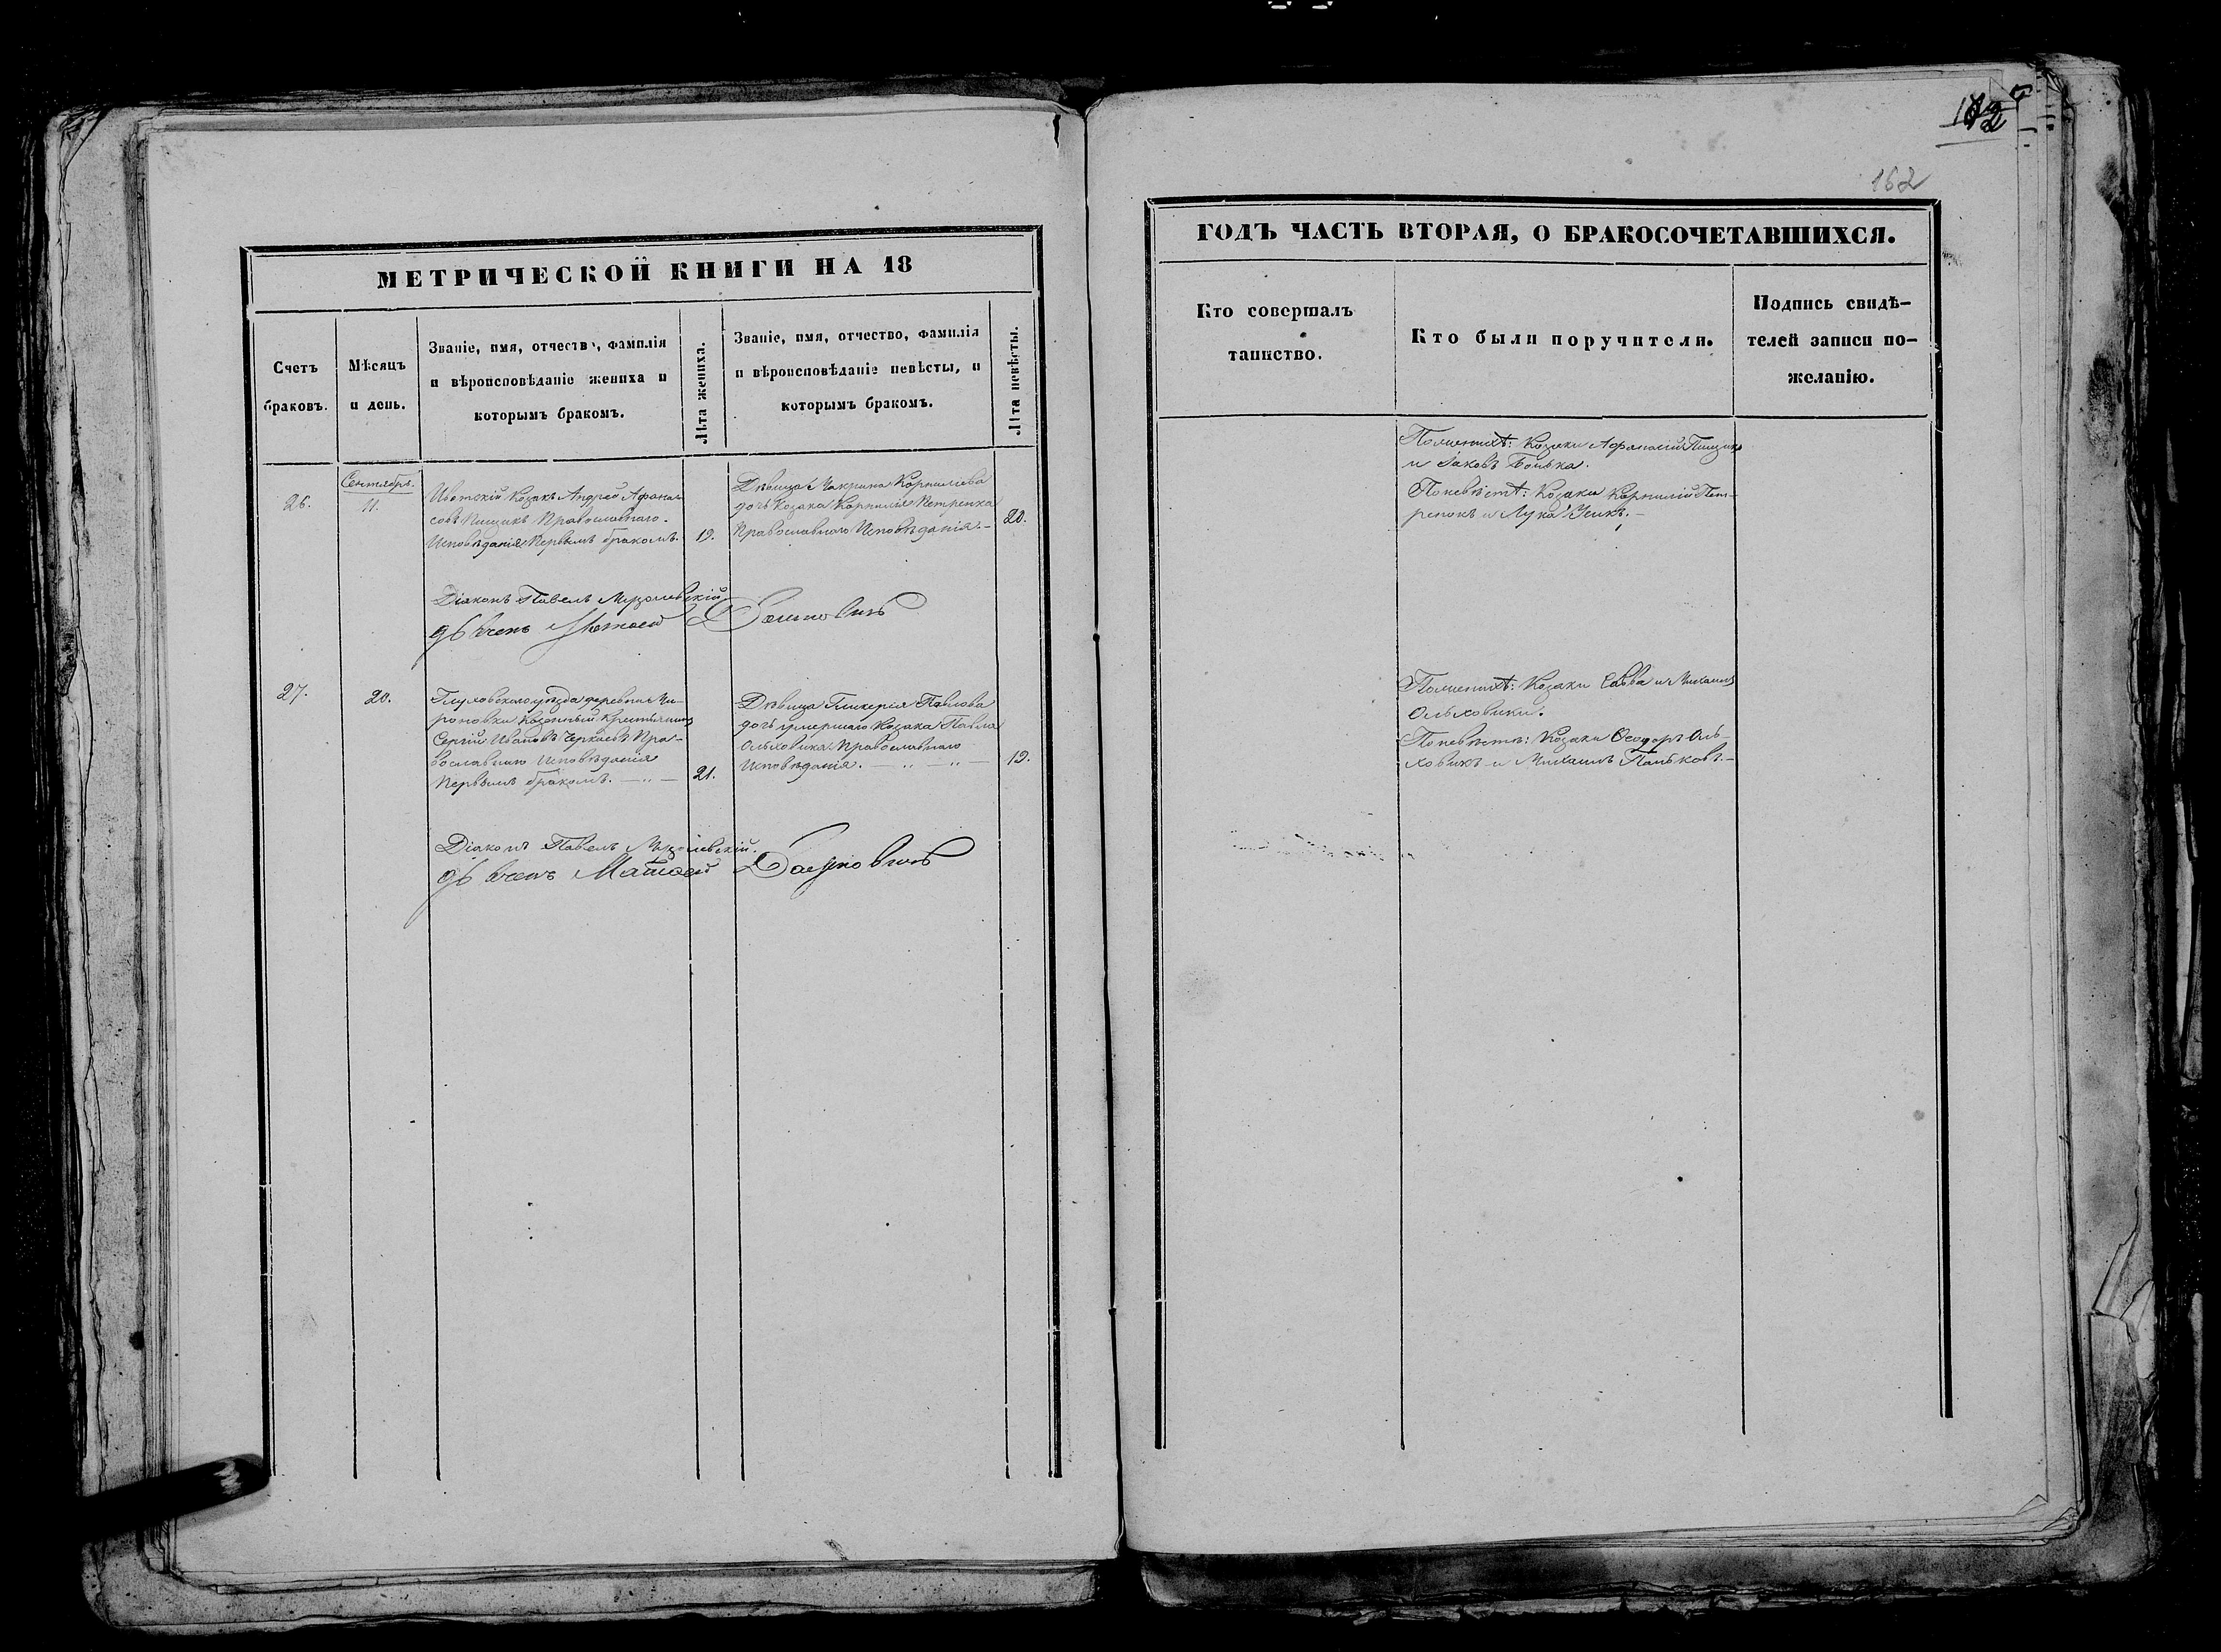 162
МЕТРИЧЕСКОЙ КНИГИ НА 18
ГОДЪ ЧАСТЬ ВТОРАЯ, О БРАКОСОЧЕТАВШИХСЯ.
Счетъ
браковъ.
Мѣсяцъ
и день.
Званіе, имя, отчество, фамилія
и вѣроисповѣданіе жениха и
которымъ бракомъ.
Лѣта жениха.
Званіе, имя, отчество, фамилія
и вѣроисповѣданіе невѣсты, и
которымъ бракомъ.
Лѣта невѣсты.
Кто совершалъ
таинство.
Кто были поручители.
Подпись свидѣ-
телей записи по-
желанію.
26.
Сентябрь.
11.
Козакъ Андрей Афана-
совъ Пищикъ Православнаго
Исповѣданія Первымъ бракомъ.
19.
Дѣвица Корниліева
дочь Козака Корнилія Петренка
Православнаго Исповѣданія.-
20.
По женихѣ: Козаки Афанасій Пищикъ
и Іаковъ
По невѣстѣ: Козаки Корнилій Пет-
ренокъ и Лука Усикъ.-
Діаконъ Павелъ
27.
20.
Глуховскаго уѣзда деревни
Казенный Крестьянинъ
Сергій Ивановъ Пра-
вославнаго Исповѣданія
Первымъ бракомъ. — " —
21.
Дѣвица Гликерія Павлова
дочь умершаго Козака Павла
Ольховика Православнаго
Исповѣданія. — " — " —
19.
По женихѣ: Козаки Савва и Михаилъ
Ольховики.
По невѣстѣ: Козаки Ѳеодоръ Оль-
ховикъ и Михаилъ Паньковъ.-
Діаконъ Павелъ